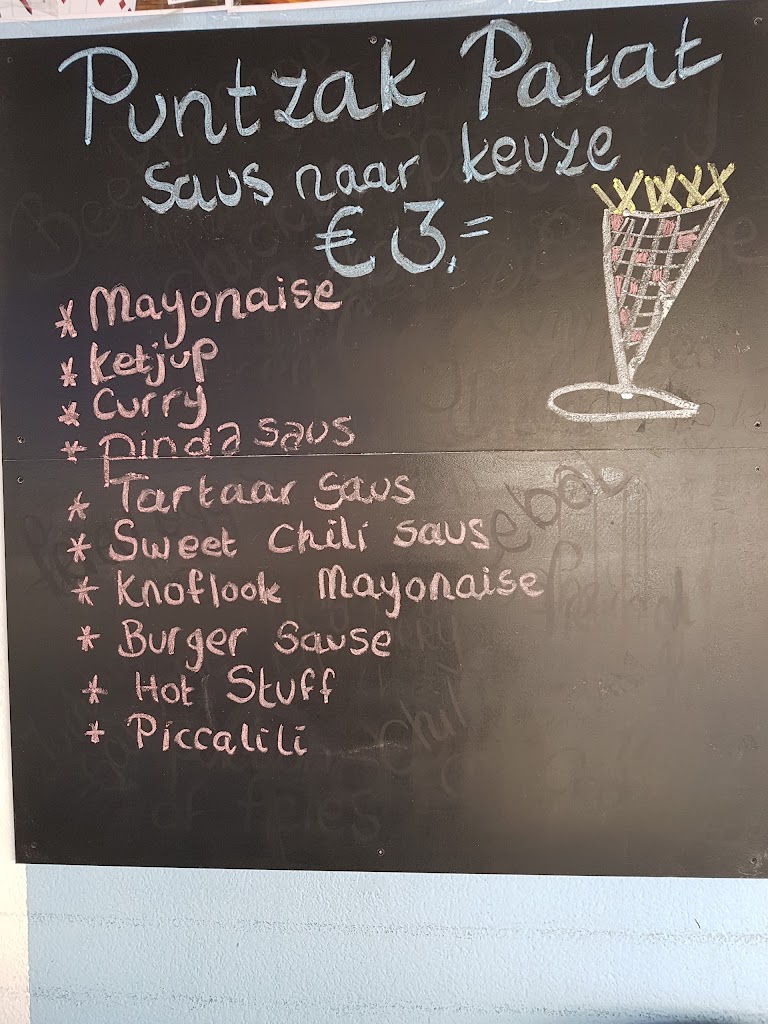 Puntzak Patat
saus naar keuze
€ 3,=
* Mayonaise
* Ketjup
* Curry
* pinda saus
* Tartaar saus
* Sweet chili saus
* Knoflook Mayonaise
* Burger sause
* Hot Stuff
* Piccalili